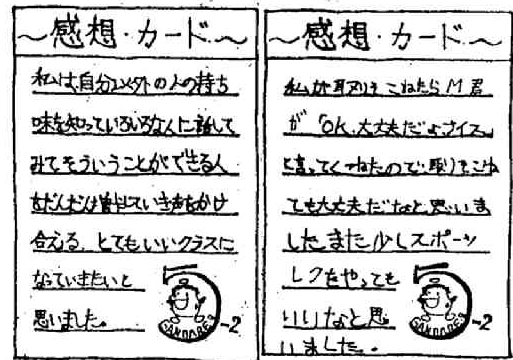 ～感想・カード～
私は、自分以外の人の持ち
味を知っていろいろな人に話して
みてそういうことができる人
をだんだん増やしていき声をかけ
合える、とてもいいクラスに
なっていきたいと
思いました。
5-2
GANBARE
～感想・カード～
私が
こねたらM君
が「OK、大丈夫だよナイス。」
と言ってくれたので、取りそこね
ても大丈夫だなと思いま
した。また少しスポーツ
レクをやっても
いいなと思
いました。
5-2
GANBARE